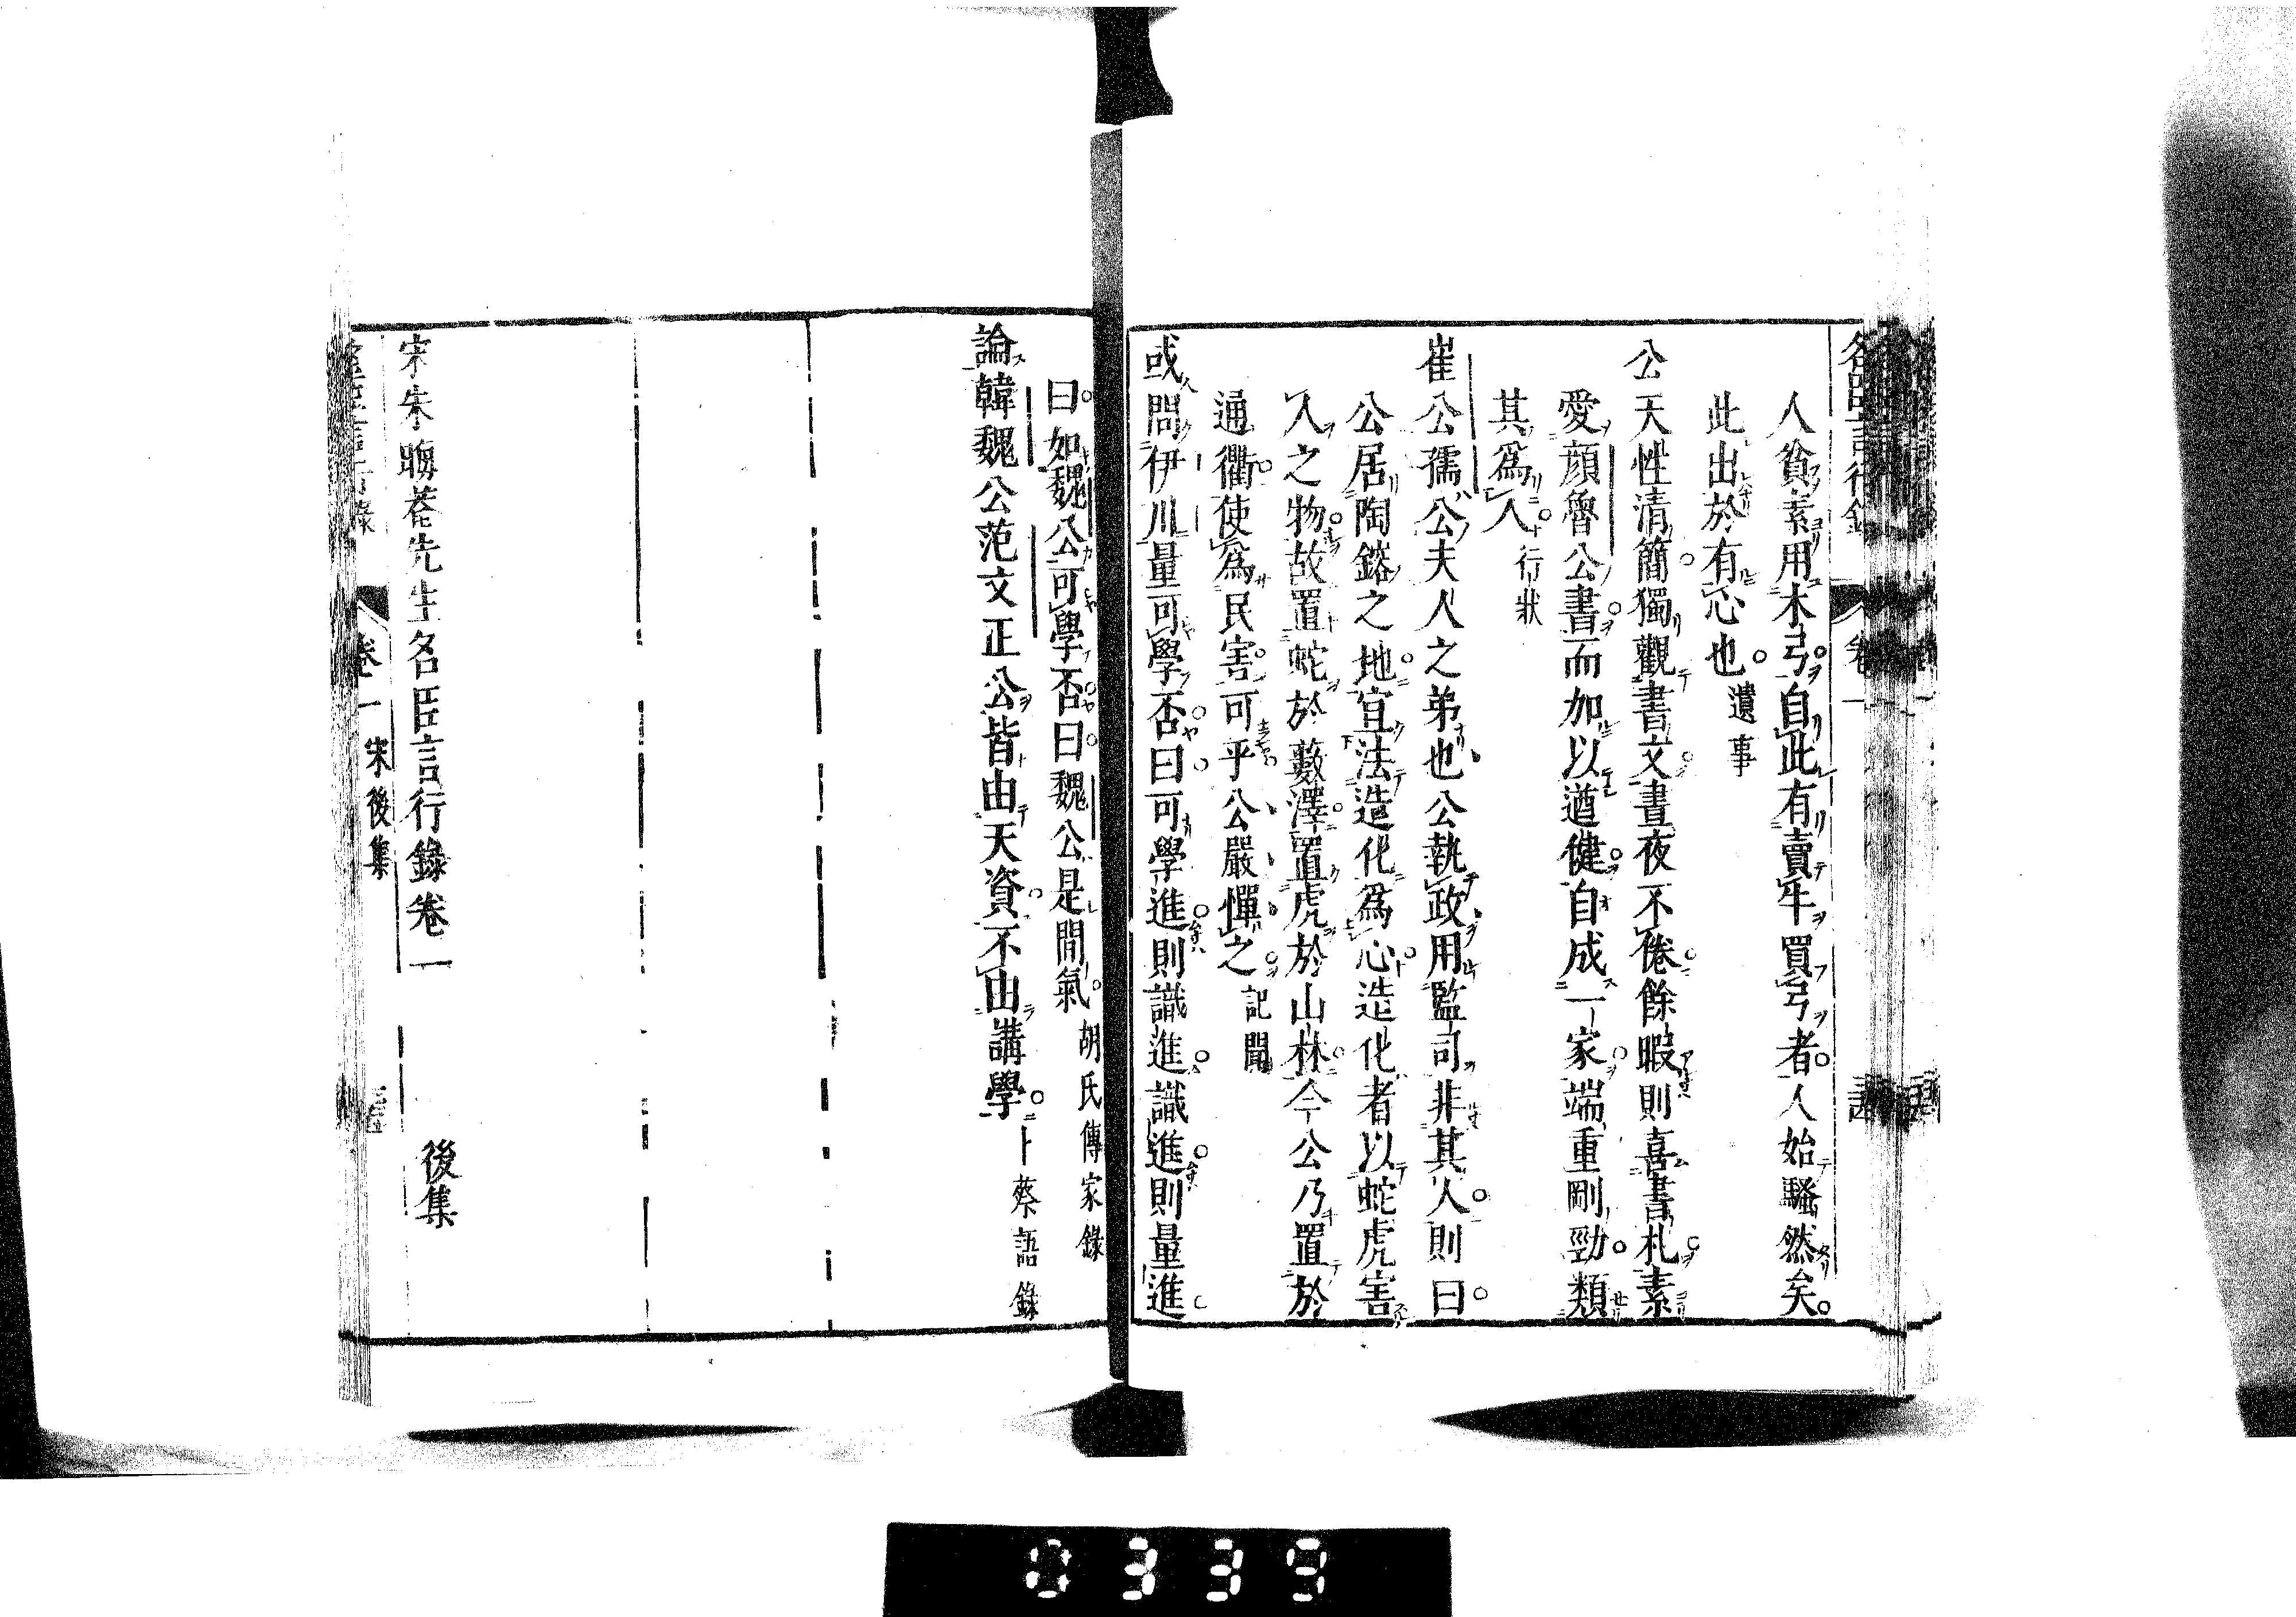 人貧素用木弓自此有賣牛買弓者人始騷然矣
此出於有心也 遺事
公天性清簡獨觀書文晝夜不倦餘暇則喜書札素
愛顔魯公書而加以遒健自成一家端重剛勁類
其爲人 行狀
崔公孺公夫人之弟也公執政用監司非其人則曰
公居陶鎔之地宜法造化爲心造化者以蛇虎害
人之物故置蛇於藪澤置虎於山林今公乃置於
通衢使爲民害可乎公嚴憚之 記聞
或問伊川量可學否曰可學進則識進識進則量進
曰如魏公可學否曰魏公是間氣 胡氏傳家錄
論韓魏公范文正公皆由天資不由講學 蔡語錄
宋朱晦菴先生名臣言行錄卷一 後集
卷一 宋後集
0339